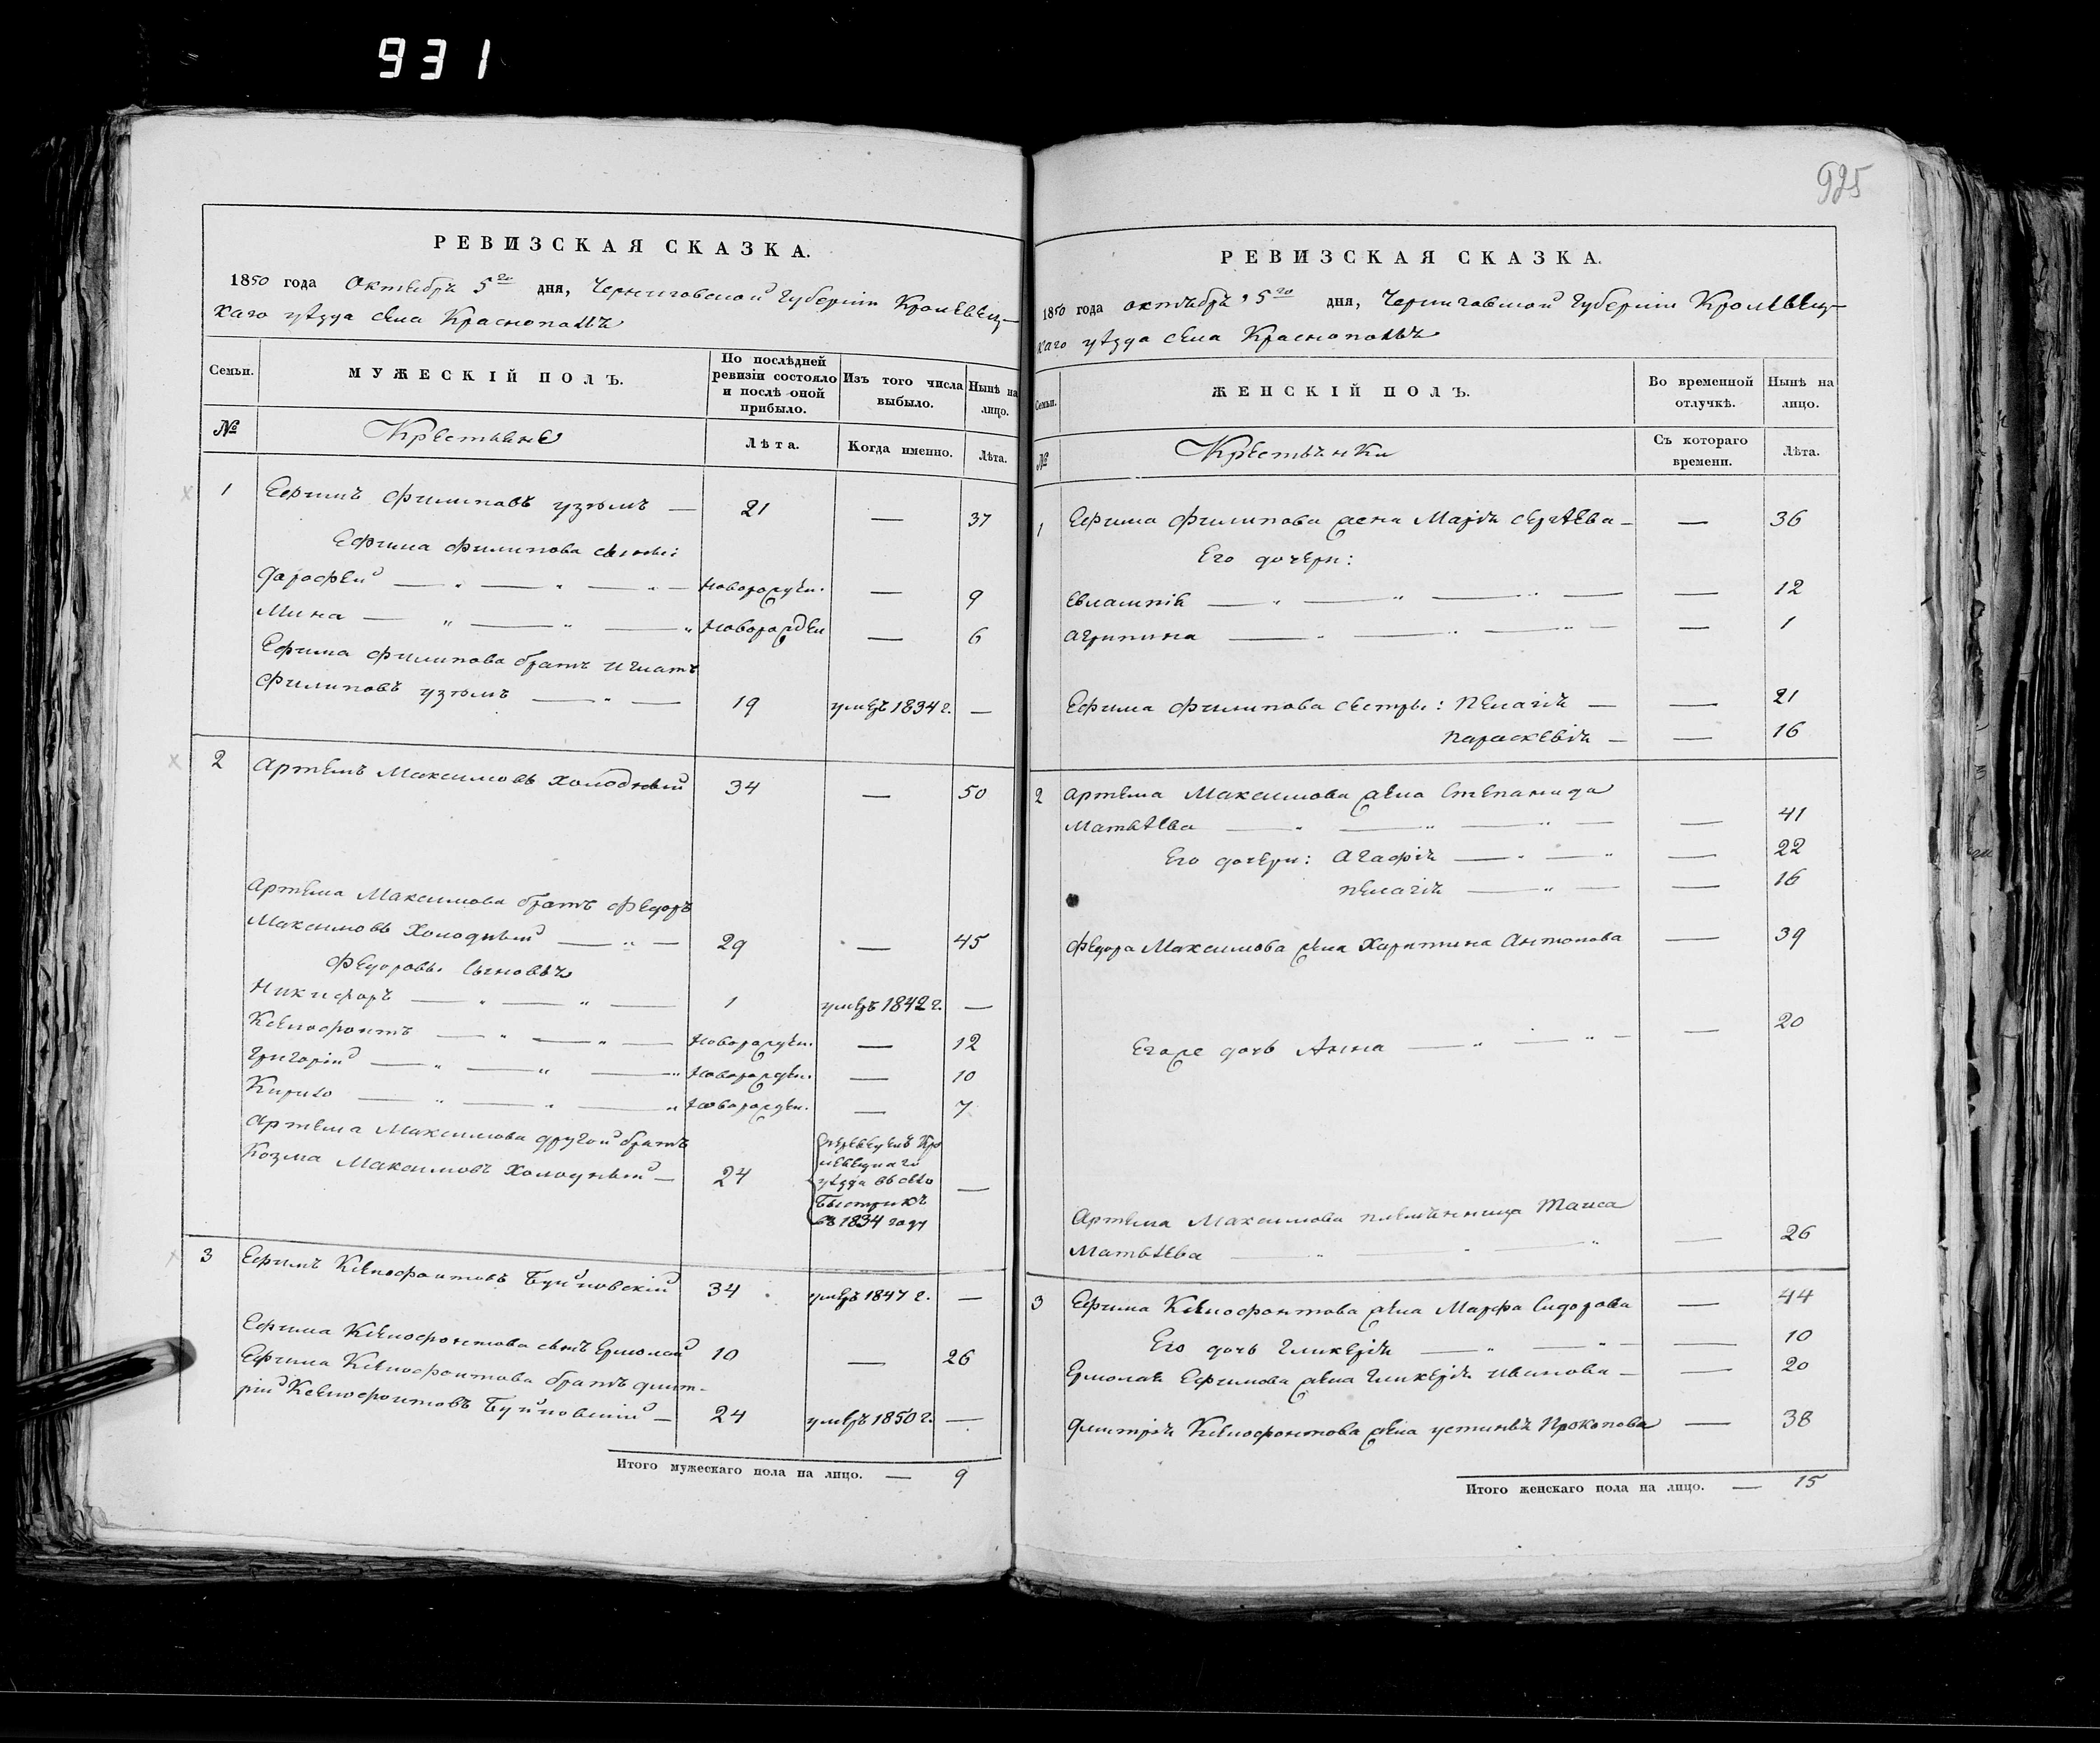 931
925
РЕВИЗСКАЯ СКАЗКА.
1850 года Октября 5го дня, Черниговской Губернiи Кролевец-
каго уѣзда села Краснополья
Семьи.
МУЖЕСКIЙ ПОЛЪ.
По послѣдней ревизiи состояло и послѣ оной прибыло.
Изъ того числа выбыло.
Нынѣ на лицо.
№
Крестьяне
Лѣта.
Когда именно.
Лѣта.
1 Ефимъ Филиповъ — 21 — 37
Ефима Филипова сыновья:
Дарофей — „ — „ — „ — новорожден. — 9
Мина — „ — „ — „ новорожден — 6
Ефима Филипова братъ Игнатъ
Филиповъ — „ — 19 умеръ 1834 г. —
2 Артемъ Максимовъ Холодный 34 — 50
Артема Максимова братъ Федоръ
Максимовъ Холодный — „ — 29 — 45
Федоровы сыновья
Никифоръ — „ — „ — 1 умеръ 1842 г. —
Ксенофонтъ — „ — „ — новорожден. — 12
Григорiй — „ — „ — „ новорожден. — 10
Кирило — „ — „ — „ новорожден. — 7
Артема Максимова другой братъ
Козма Максимовъ Холодный — 24 —
переведенъ Кро
левецкаго
уѣзда въ село
Быстрикъ
въ 1834 году
3 Ефимъ Ксенофонтовъ Буйновскiй 34 умеръ 1847 г. —
Ефима Ксенофонтова сынъ Ермолай 10 — 26
Ефима Ксенофонтова братъ Дмит-
рiй Ксенофонтовъ Буйновскiй — 24 умеръ 1850 г. —
Итого мужескаго пола на лицо. — 9
РЕВИЗСКАЯ СКАЗКА.
1850 года октября 5го дня, Черниговской Губернiи Кролевец-
каго уѣзда села Краснополья
Семьи.
ЖЕНСКIЙ ПОЛЪ.
Во временной отлучкѣ.
Нынѣ на лицо.
№
Крестьянки
Съ котораго времени.
Лѣта.
1 Ефима Филипова жена Марiя Сергѣева — — 36
Его дочери:
Евлампiя — „ — „ — „ — — 12
Агрипина — „ — „ — „ — — 1
Ефима Филипова сестры: Пелагiя — — 21
Параскевiя — — 16
2 Артема Максимова жена Степанида
Матвѣева — „ — „ — „ — — 41
Его дочери: Агафiя — „ — „ — 22
Пелагiя — „ — — 16
Федора Максимова жена Харитина Антонова — 39
Егоже дочь Анна — „ — „ — — 20
Артема Максимова племянница Таиса
Матвѣева — „ — „ — „ — 26
3 Ефима Ксенофонтова жена Марфа Сидорова — 44
Его дочь Гликерiя — „ — „ — — 10
Ермолая Ефимова жена Гликерiя Иванова — — 20
Дмитрiя Ксенофонтова жена Устинья Прокопова — 38
Итого женскаго пола на лицо. — 15